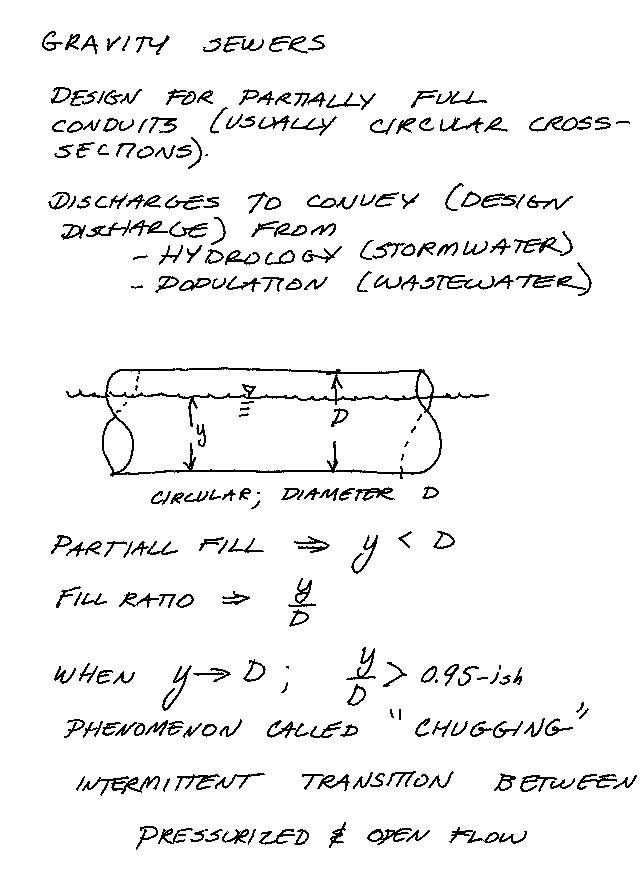 GRAVITY SEWERS
DESIGN FOR PARTIALLY FULL
CONDUITS (USUALLY CIRCULAR CROSS-
SECTIONS).
DISCHARGES TO CONVEY (DESIGN
DISCHARGE) FROM
- HYDROLOGY (STORMWATER)
- POPULATION (WASTEWATER)
y
D
CIRCULAR; DIAMETER D
PARTIALL FILL ⇒ y < D
FILL RATIO ⇒ y/D
WHEN y → D; y/D > 0.95-ish
PHENOMENON CALLED "CHUGGING"
INTERMITTENT TRANSITION BETWEEN
PRESSURIZED & OPEN FLOW